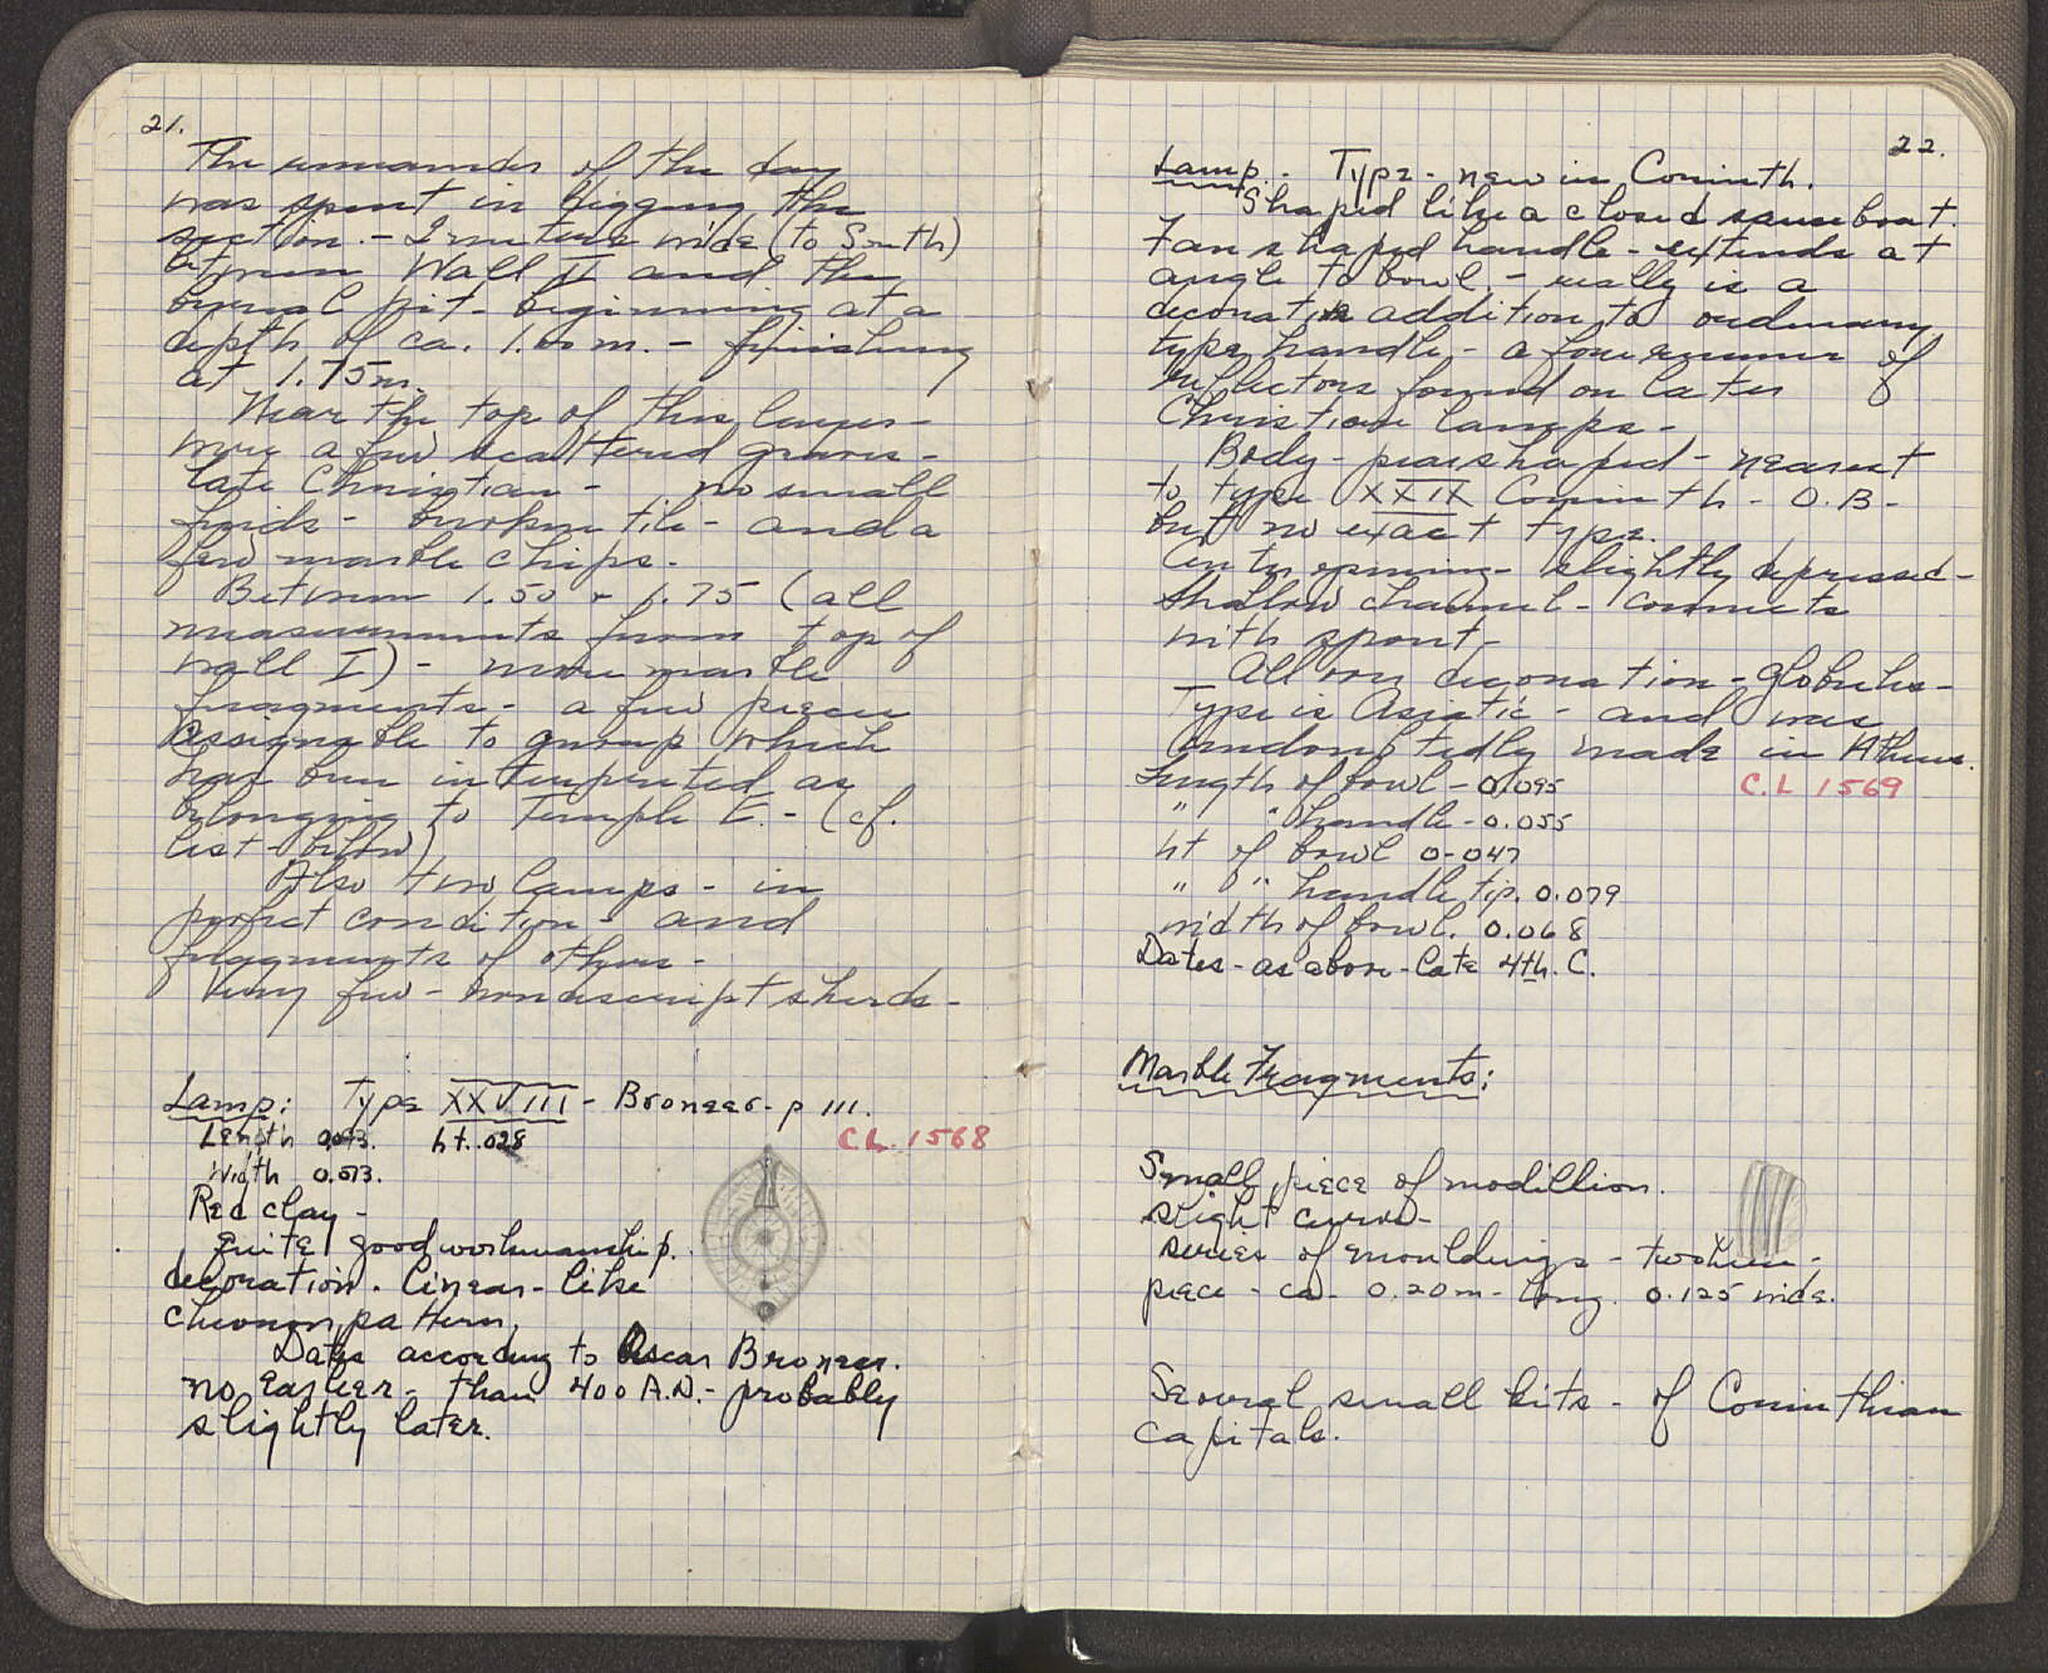 21.
The remainder of the day
was spent in digging the
section. - 2 meters wide (to South)
between Wall II and the
burial pit - beginning at a
depth of ca. 1.00 m. - finishing
at 1.75m.
Near the top of this layer -
were a few scattered graves -
late Christian - no small
finds - broken tile - and a
few marble chips.
Between 1.50 + 1.75 (all
measurements from top of
wall I) - more marble
fragments - a few pieces
assignable to group which
has been interpreted as
belonging to Temple E. - (cf.
list - below)
Also two lamps - in
perfect condition - and
fragments of others -
Very few - nondescript sherds -
Lamp: Type XXVIII - Broneer - p 111.
C.L. 1568
Length 0.093. ht. .028
Width 0.073.
Red clay -
quite good workmanship.
decoration. linear - like
chevron pattern.
Dates according to Oscar Broneer.
no earlier - than 400 A.D. - probably
slightly later.
22.
Lamp. - Type - new in Corinth.
Shaped like a closed sauceboat.
Fan shaped handle - extends at
angle to bowl. - really is a
decorative addition to ordinary
type handle - a forerunner of
reflectors found on later
Christian lamps -
Body - pear shaped - nearest
to type XXIX Corinth - O.B. -
but no exact type.
Center opening - slightly depressed -
shallow channel - connects
with spout -
All over decoration - globules -
Type is Asiatic - and was
undoubtedly made in Athens.
Length of bowl - 0.095
C.L 1569
" " handle - 0.055
ht of bowl 0.047
" " handle tip. 0.079
width of bowl. 0.068
Dates - as above - late 4th. C.
Marble Fragments:
Small piece of modillion.
slight curve -
series of mouldings -
piece - ca - 0.20m - long. 0.125 wide.
Several small bits - of Corinthian
capitals.